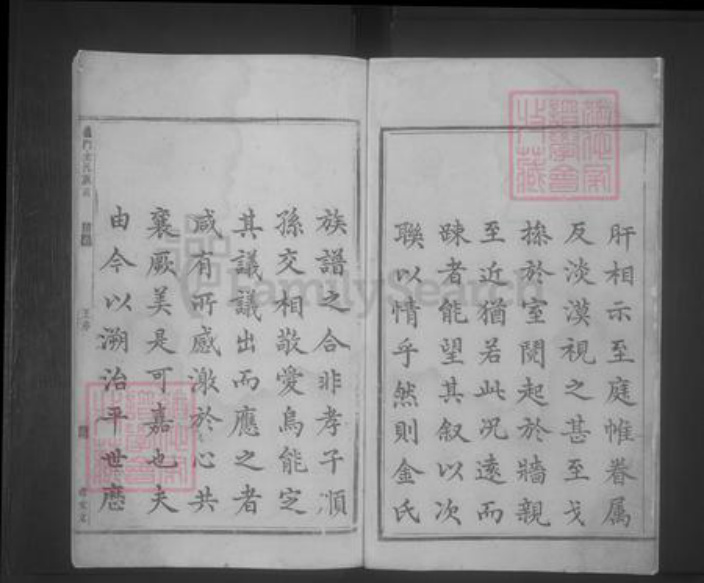 肝相示至庭帷眷属
反淡漠視之甚至戈
操於室鬩起於牆親
至近猶若此况遠而
踈者能望其叙以次
聯以情乎然則金氏
族譜之合非孝子順
孫交相敬愛烏能定
其議議出而應之者
咸有所感激於心共
襄厥美是可嘉也夫
由今以溯治平世歴
FamilySearch